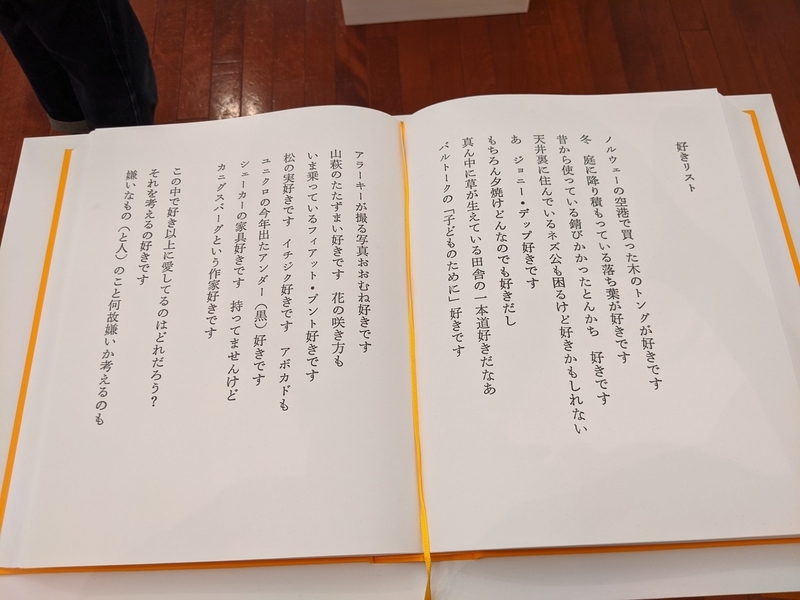 好きリスト
ノルウェーの空港で買った木のトングが好きです
冬　庭に降り積もっている落ち葉が好きです
昔から使っている錆びかかったとんかち　好きです
天井裏に住んでいるネズ公も困るけど好きかもしれない
あ　ジョニー・デップ好きです
もちろん夕焼けどんなのでも好きだし
真ん中に草が生えている田舎の一本道好きだなあ
バルトークの「子どものために」好きです
アラーキーが撮る写真おおむね好きです
山萩のたたずまい好きです　花の咲き方も
いま乗っているフィアット・プント好きです
松の実好きです　イチジク好きです　アボカドも
ユニクロの今年出たアンダー（黒）好きです
シェーカーの家具好きです　持ってませんけど
カニグズバーグという作家好きです
この中で好き以上に愛してるのはどれだろう？
それを考えるの好きです
嫌いなもの（と人）のこと何故嫌いか考えるのも